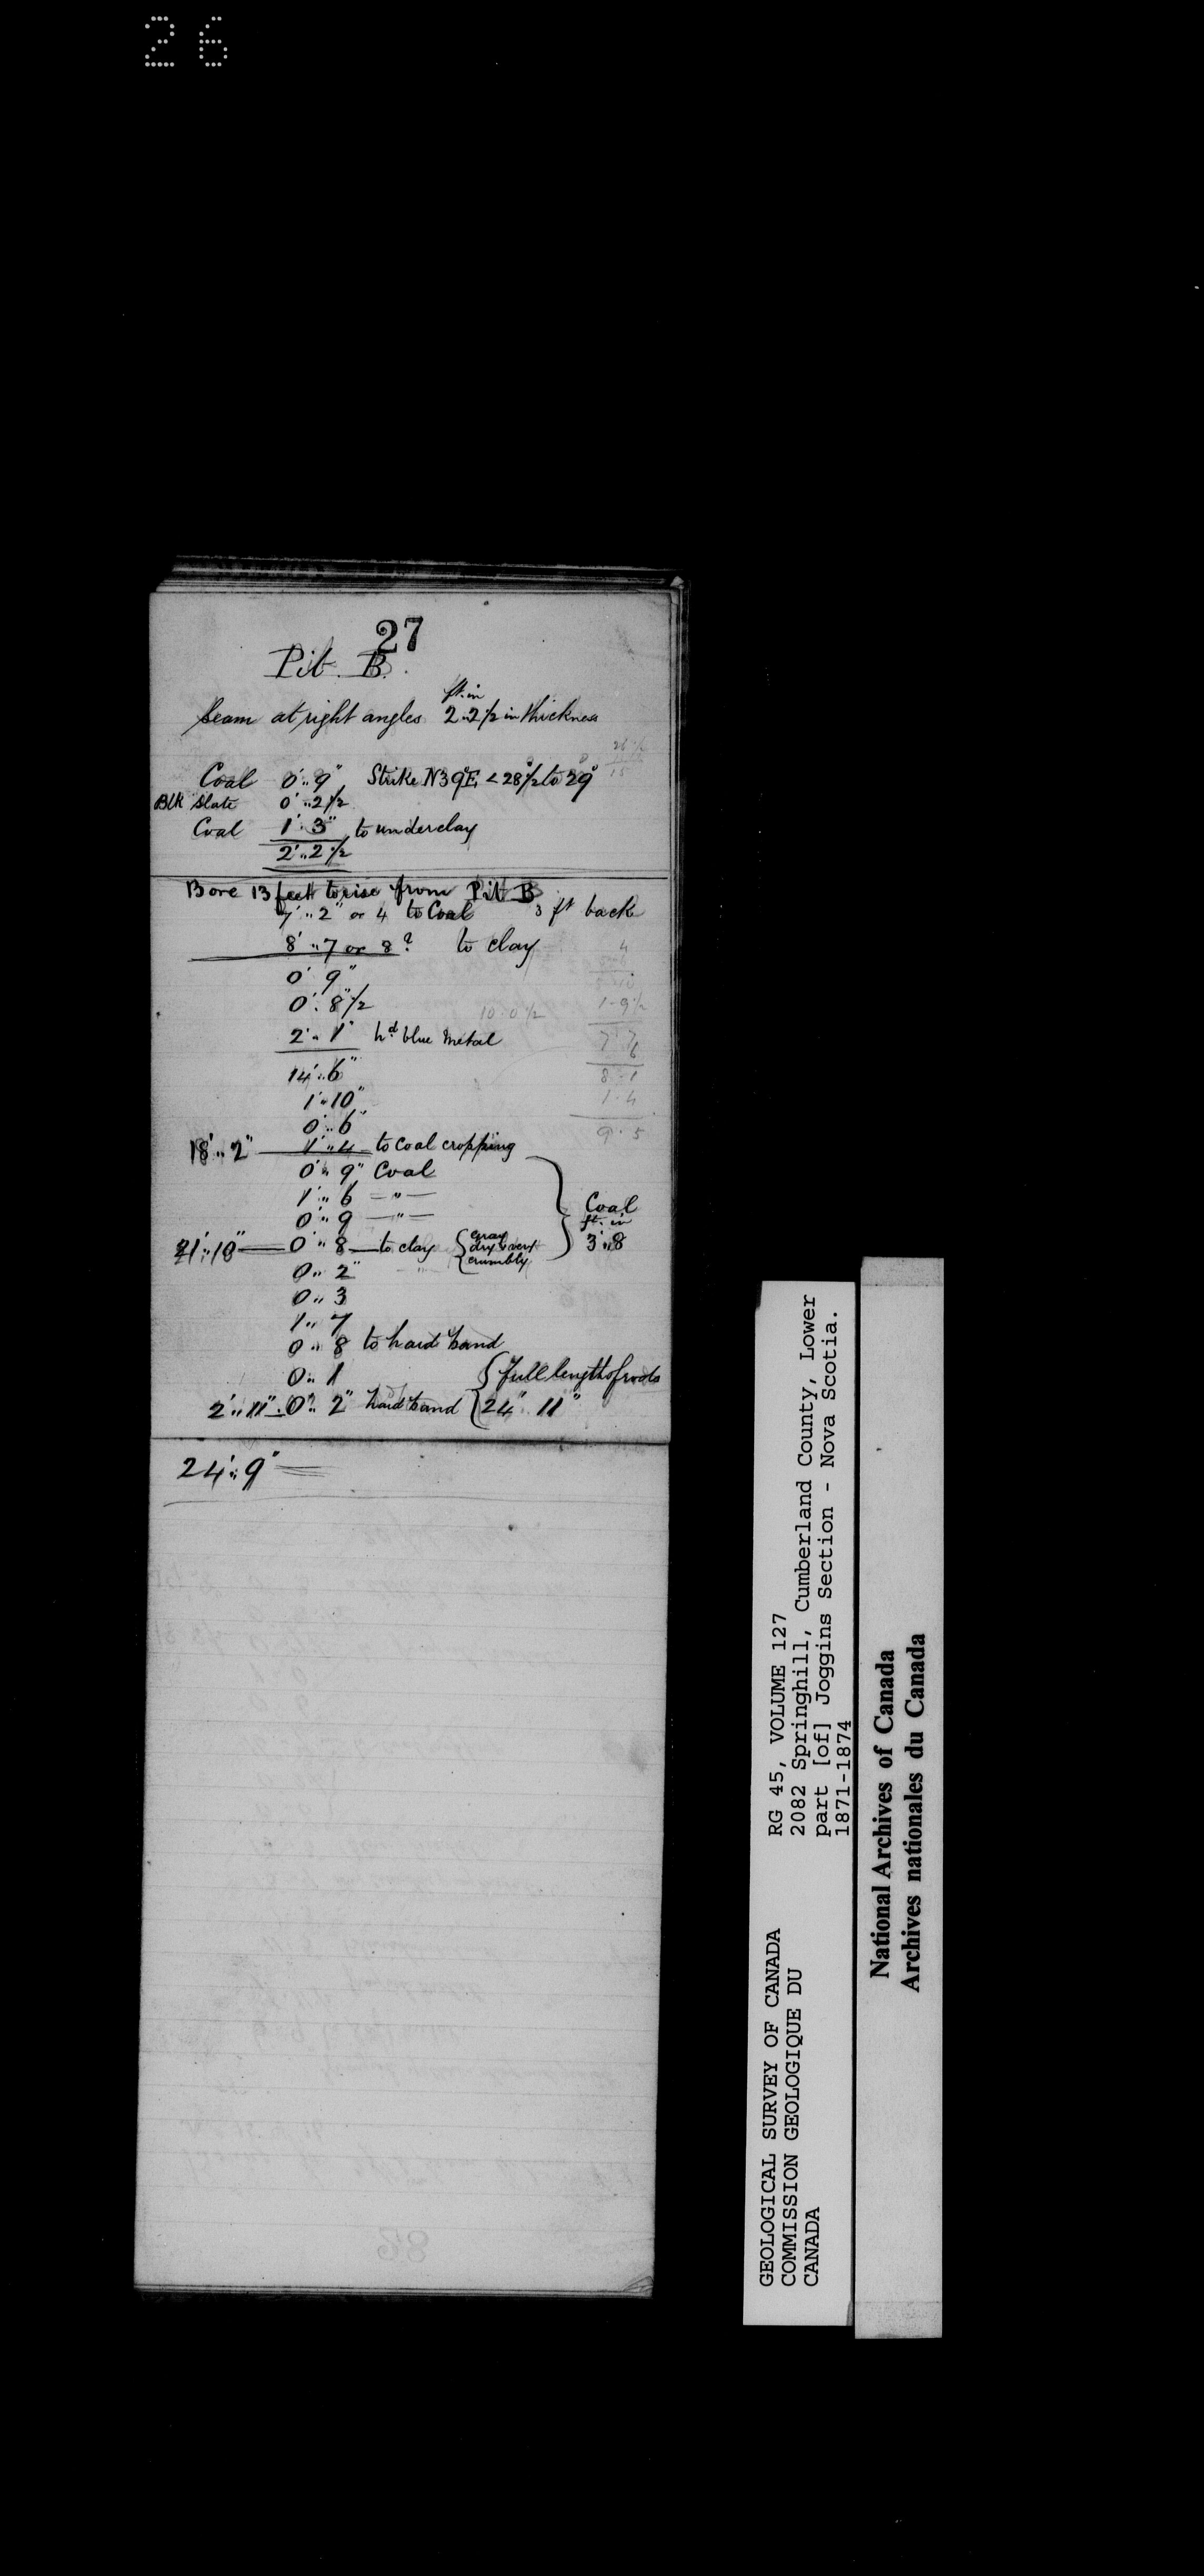 26
27
Pit B.
ft. in
Seam at right angles 2..2½ in thickness
Coal 0'..9" Strike N39°E, < 28½° to 29°
Blk Slate 0'..2½
Coal 1'..3" to underclay
2'..2½
Bore 13 feet to rise from Pit B
7'..2" or 4 to Coal 3 ft back
8'..7 or 8? to clay
0' 9"
0'..8"½
10-0½ 1-9½
2'..1" hd blue metal
14'..6" 8-1
1'..10" 1-4
0'..6" 9-5
18'..2" 1'..4 to coal cropping
0'..9" Coal
1'..6 —"—
0'..9 —"—
Coal
ft. in
3'..8
21'..10" 0'..8 to clay { gray dry & very crumbly
0..2"
0..3
1..7
0..8 to hard band
0..1 { full length of rods
2'..11" 0'..2" hard band { 24'..11"
24'..9"
GEOLOGICAL SURVEY OF CANADA
COMMISSION GEOLOGIQUE DU
CANADA
RG 45, VOLUME 127
2082 Springhill, Cumberland County, Lower
part [of] Joggins Section - Nova Scotia.
1871-1874
National Archives of Canada
Archives nationales du Canada